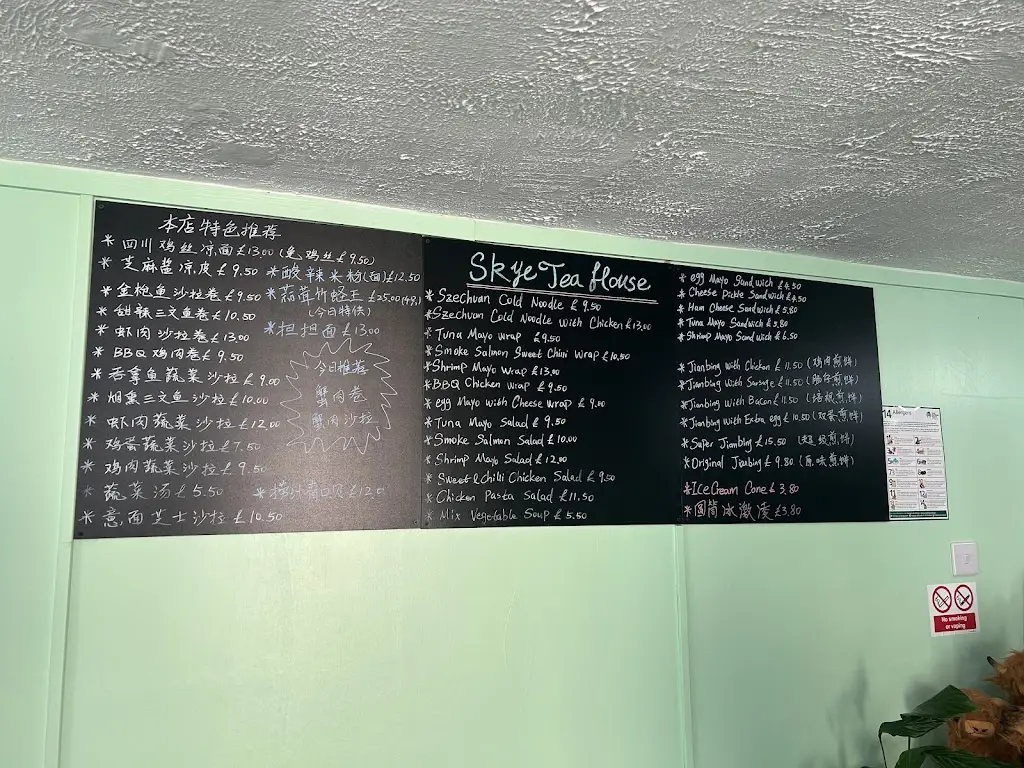 本店特色推荐
* 四川鸡丝凉面£13.00 (免鸡丝£9.50)
* 芝麻酱凉皮£9.50
* 金枪鱼沙拉卷£9.50
* 甜辣三文鱼卷£10.50
* 虾肉沙拉卷£13.00
* BBQ鸡肉卷£9.50
* 吞拿鱼蔬菜沙拉£9.00
* 烟熏三文鱼沙拉£10.00
* 虾肉蔬菜沙拉£12.00
* 鸡蛋蔬菜沙拉£7.50
* 鸡肉蔬菜沙拉£9.50
* 蔬菜汤£5.50
* 意面芝士沙拉£10.50
* 酸辣米粉(面)£12.50
* 蒜茸竹蛏王£25.00
(今日特供)
* 担担面£13.00
今日推荐
蟹肉卷
蟹肉沙拉
Skye Tea House
* Szechuan Cold Noodle £9.50
* Szechuan Cold Noodle with Chicken £13.00
* Tuna Mayo wrap £9.50
* Smoke Salmon Sweet Chini Wrap £10.50
* Shrimp Mayo Wrap £13.00
* BBQ Chicken Wrap £9.50
* egg Mayo with Cheese wrap £9.00
* Tuna Mayo Salad £9.50
* Smoke Salmon Salad £10.00
* Shrimp Mayo Salad £12.00
* Sweet & Chili Chicken Salad £9.50
* Chicken Pasta Salad £11.50
* Mix Vegetable Soup £5.50
* egg Mayo Sandwich £4.50
* Cheese Pickle Sandwich £4.50
* Ham Cheese Sandwich £5.80
* Tuna Mayo Sandwich £5.80
* Shrimp Mayo Sandwich £6.50
* Jianbing with Chicken £11.50 (鸡肉煎饼)
* Jianbing with Sausage £11.50 (肠仔煎饼)
* Jianbing with Bacon £11.50 (培根煎饼)
* Jianbing with Extra egg £10.50 (双蛋煎饼)
* Super Jianbing £15.50 (超级煎饼)
* Original Jianbing £9.80 (原味煎饼)
* Ice Cream Cone £3.80
* 圆筒冰激凌£3.80
14 Allergens
No smoking
or vaping